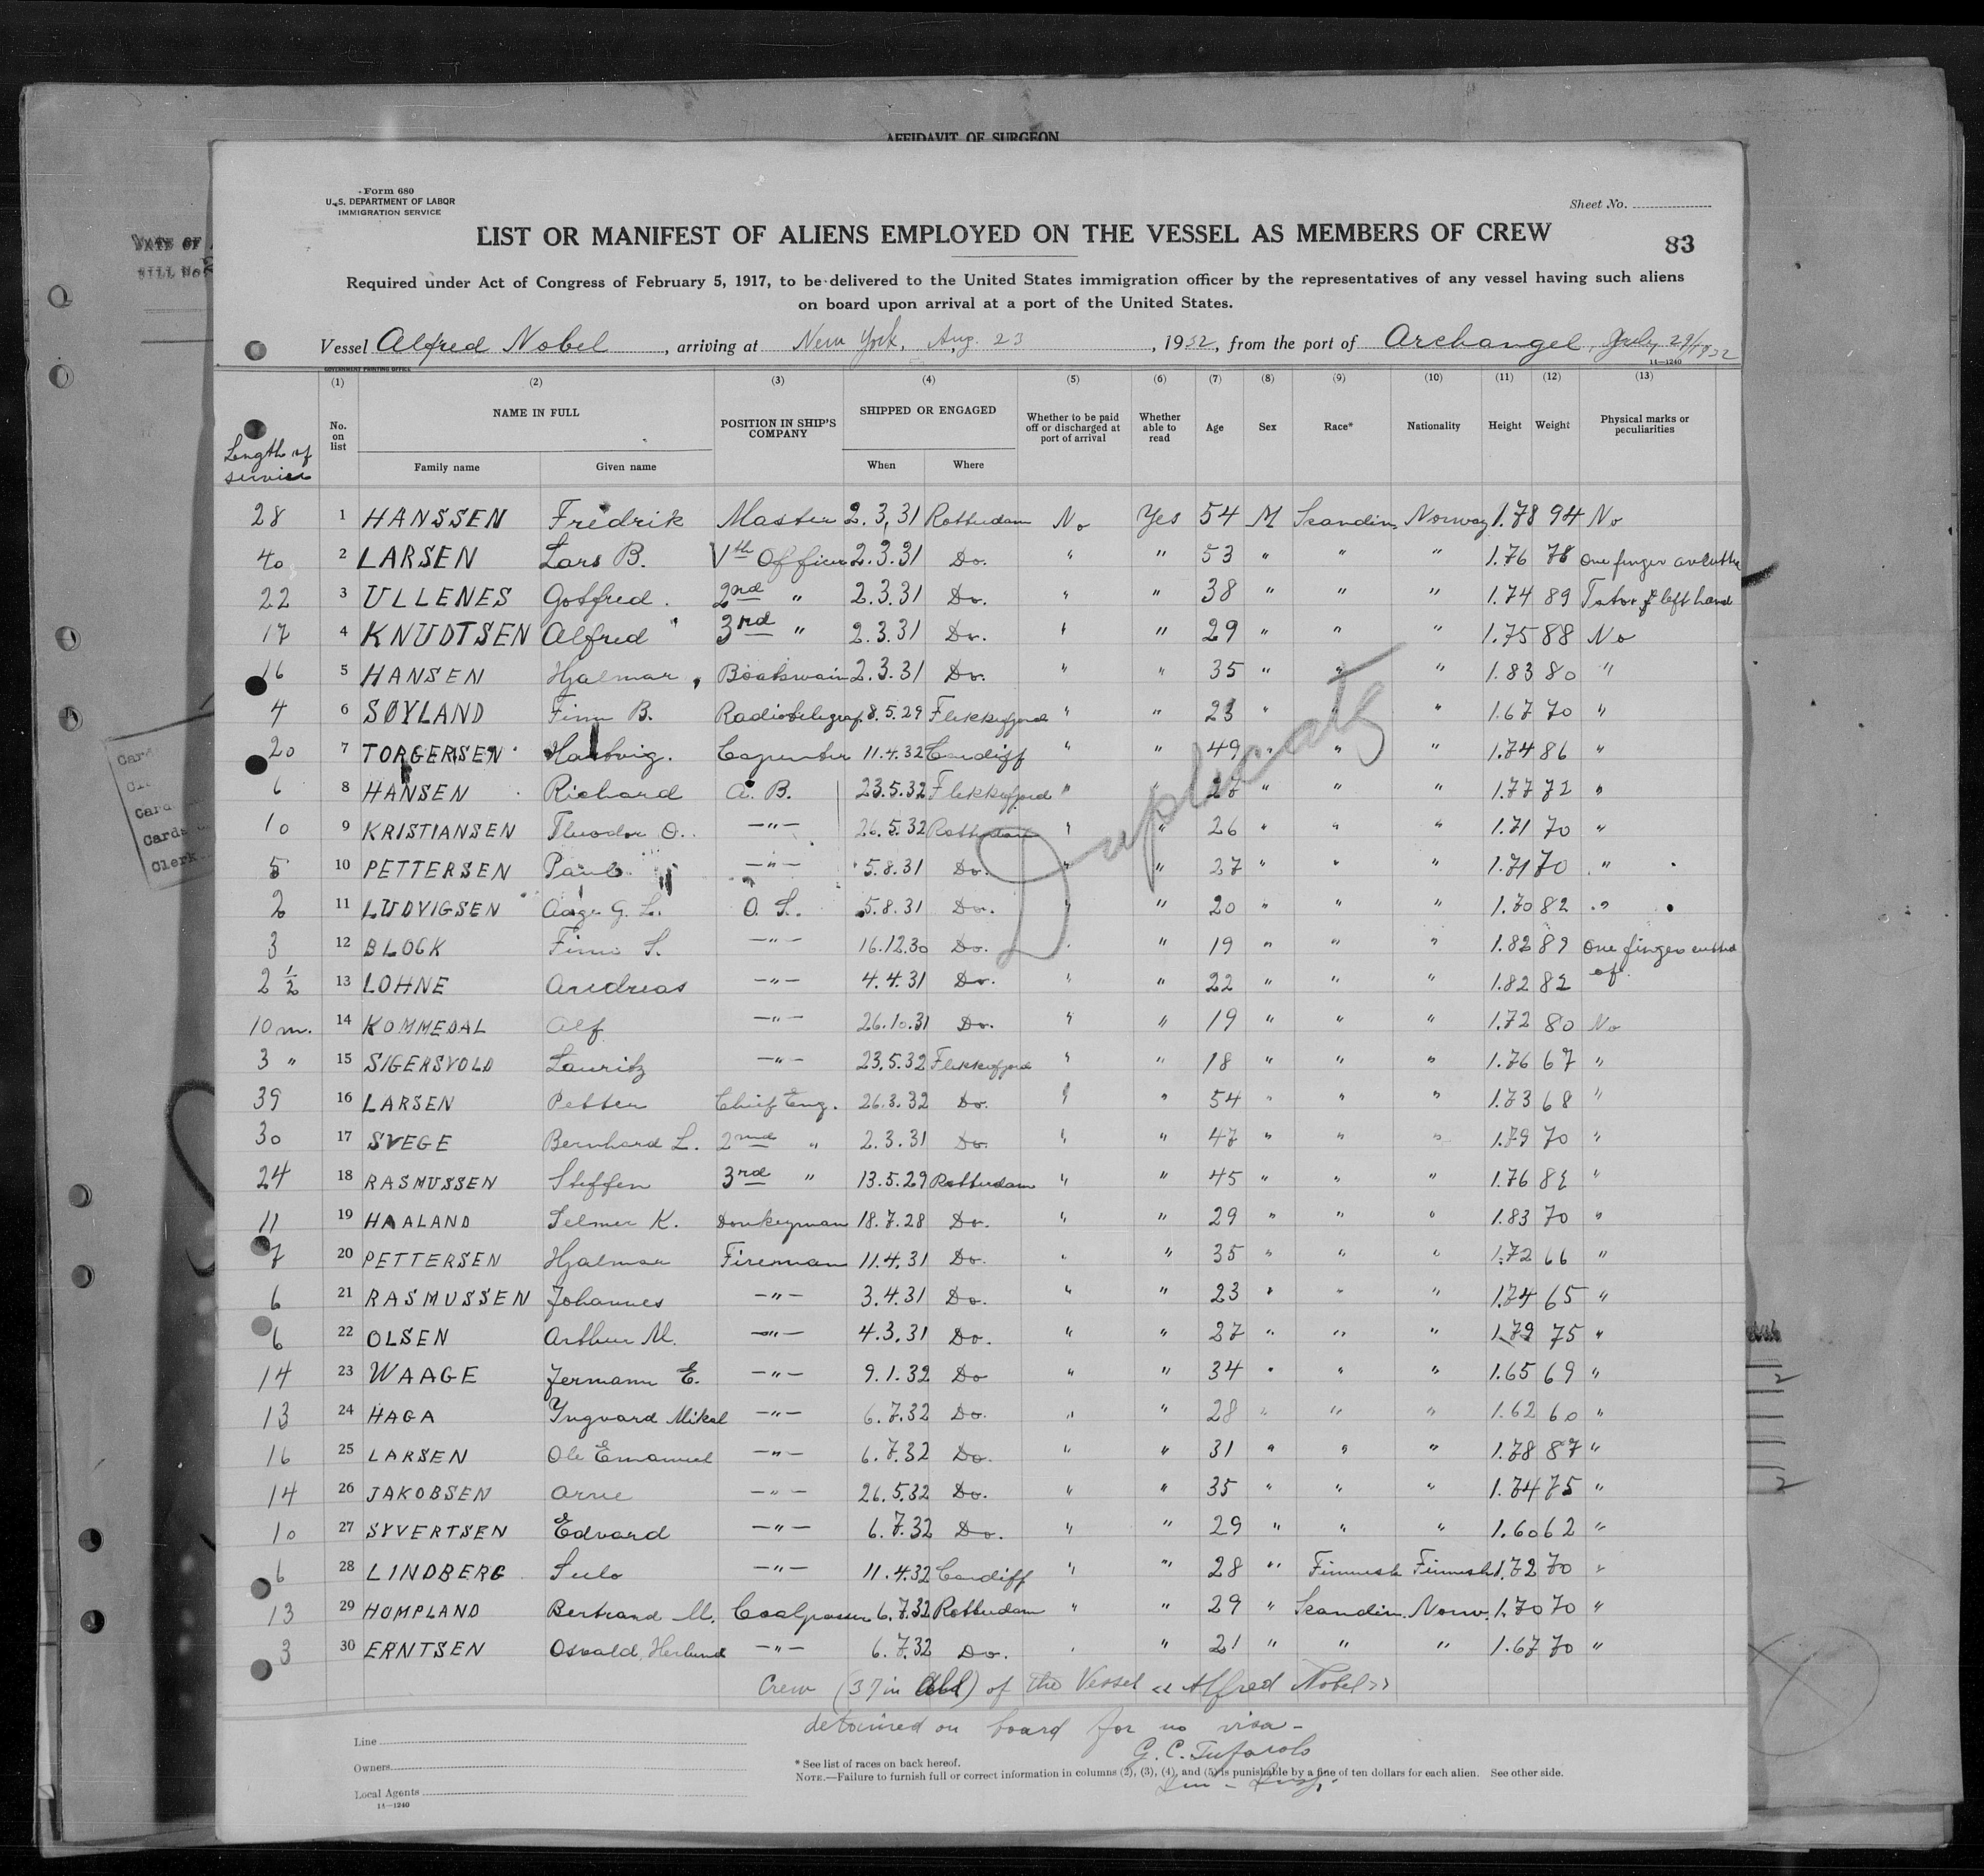 AFFIDAVIT OF SURGEON
Form 680
U.S. DEPARTMENT OF LABOR
IMMIGRATION SERVICE
Sheet No.
LIST OR MANIFEST OF ALIENS EMPLOYED ON THE VESSEL AS MEMBERS OF CREW
83
Required under Act of Congress of February 5, 1917, to be delivered to the United States immigration officer by the representatives of any vessel having such aliens
on board upon arrival at a port of the United States.
Vessel Alfred Nobel, arriving at New York, Aug. 23, 1932, from the port of Archangel, July 29/1932
GOVERNMENT PRINTING OFFICE 14—1240
(1) (2) (3) (4) (5) (6) (7) (8) (9) (10) (11) (12) (13)
Length of service No. on list NAME IN FULL Family name Given name POSITION IN SHIP'S COMPANY SHIPPED OR ENGAGED When Where Whether to be paid off or discharged at port of arrival Whether able to read Age Sex Race* Nationality Height Weight Physical marks or peculiarities
28 1 HANSSEN Fredrik Master 2.3.31 Rotterdam No Yes 54 M Scandin. Norway 1.78 94 No
40 2 LARSEN Lars B. Vth Officer 2.3.31 Do. " " 53 " " " 1.76 78 One finger
22 3 ULLENES Gotfred. 2nd " 2.3.31 Do. " " 38 " " " 1.74 89 left hand
17 4 KNUDTSEN Alfred 3rd " 2.3.31 Do. " " 29 " " " 1.75 88 No
16 5 HANSEN Hjalmar, Boatswain 2.3.31 Do. " " 35 " " " 1.83 80 "
4 6 SØYLAND Finn B. Radiotelegraf. 8.5.29 Flekkefjord " " 23 " " " 1.67 70 "
20 7 TORGERSEN Hartvig. Carpenter 11.4.32 Cardiff " " 49 " " " 1.74 86 "
6 8 HANSEN Richard A. B. 23.5.32 Flekkefjord " " 27 " " " 1.77 72 "
10 9 KRISTIANSEN Theodor O. —"— 26.5.32 Rotterdam " " 26 " " " 1.71 70 "
5 10 PETTERSEN Paul —"— 5.8.31 Do. " " 27 " " " 1.71 70 "
2 11 LUDVIGSEN Aage G. L. O. S. 5.8.31 Do. " " 20 " " " 1.70 82 "
3 12 BLOCK Finn S. —"— 16.12.30 Do. " " 19 " " " 1.82 89 One finger cutted
of.
2 1/2 13 LOHNE Andreas —"— 4.4.31 Do. " " 22 " " " 1.82 82
10 m. 14 KOMMEDAL Alf —"— 26.10.31 Do. " " 19 " " " 1.72 80 No
3 " 15 SIGERSVOLD Lauritz —"— 23.5.32 Flekkefjord " " 18 " " " 1.76 67 "
39 16 LARSEN Petter Chief Eng. 26.3.32 Do. " " 54 " " " 1.73 68 "
30 17 SVEGE Bernhard L. 2nd " 2.3.31 Do. " " 47 " " " 1.79 70 "
24 18 RASMUSSEN Steffen 3rd " 13.5.29 Rotterdam " " 45 " " " 1.76 "
11 19 HAALAND Selmer K. Donkeyman 18.7.28 Do. " " 29 " " " 1.83 70 "
7 20 PETTERSEN Hjalmar Fireman 11.4.31 Do. " " 35 " " " 1.72 66 "
6 21 RASMUSSEN Johannes —"— 3.4.31 Do. " " 23 " " " 1.74 65 "
6 22 OLSEN Arthur M. —"— 4.3.31 Do. " " 27 " " " 1.79 75 "
14 23 WAAGE Jermann E. —"— 9.1.32 Do " " 34 " " " 1.65 69 "
13 24 HAGA Yngvard Mikal —"— 6.7.32 Do. " " 28 " " " 1.62 60 "
16 25 LARSEN Ole Emanuel —"— 6.7.32 Do. " " 31 " " " 1.78 87 "
14 26 JAKOBSEN Arne —"— 26.5.32 Do. " " 35 " " " 1.74 75 "
10 27 SYVERTSEN Edvard —"— 6.7.32 Do. " " 29 " " " 1.60 62 "
6 28 LINDBERG Sulo —"— 11.4.32 Cardiff " " 28 " Finnish Finnish 1.72 70 "
13 29 HOMPLAND Bertrand M. Coalpasser 6.7.32 Rotterdam " " 29 " Scandin. Norw. 1.70 70 "
3 30 ERNTSEN Osvald —"— 6.7.32 Do. " " 21 " " " 1.67 70 "
Duplicate
Crew (37 in all) of the Vessel "Alfred Nobel"
detained on board for no visa –
G. C. Tufarolo
Line
Owners
Local Agents
14—1240
* See list of races on back hereof.
NOTE.—Failure to furnish full or correct information in columns (2), (3), (4), and (5) is punishable by a fine of ten dollars for each alien. See other side.